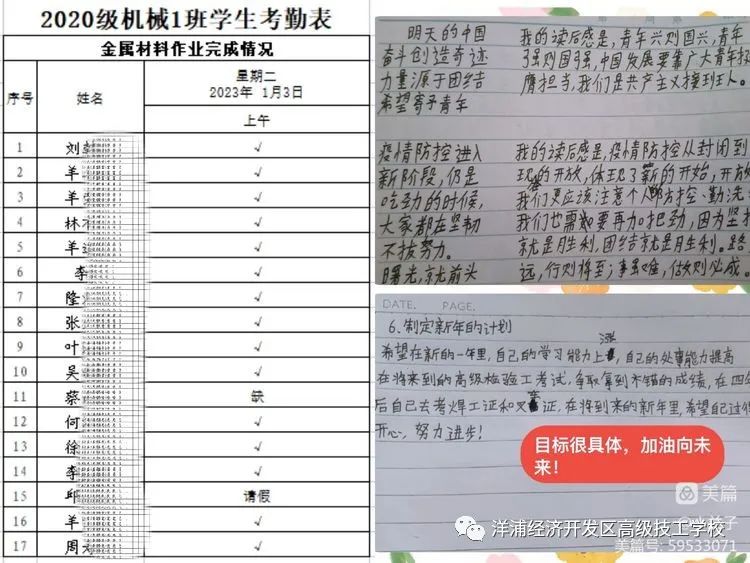 2020级机械1班学生考勤表
金属材料作业完成情况
序号 姓名 星期二
2023年 1月3日
上午
1 刘 √
2 羊 √
3 羊 √
4 林 √
5 羊 √
6 李 √
7 隆 √
8 张 √
9 叶 √
10 吴 √
11 蔡 缺
12 何 √
13 徐 √
14 李 √
15 邱 请假
16 羊 √
17 周 √
明天的中国
奋斗创造奇迹
力量源于团结
希望寄予青年
我的读后感是,青年兴则国兴,青年
强则国强,中国发展要靠广大青年
膺担当,我们是共产主义接班人。
疫情防控进入
新阶段,仍是
吃劲的时候,
大家都在坚韧
不拔努力。
曙光就前头
我的读后感是,疫情防控从封闭到
现的开放,体现了新的开始,开放
我们更应该注意个防控、勤洗
我们也需要再加把劲,因为坚
就是胜利,团结就是胜利。路
远,行则将至;事虽难,做则必成。
DATE. PAGE.
6.制定新年的计划
希望在新的一年里,自己的学习能力上涨,自己的处事能力提高
在将来到的高级检验工考试,争取拿到不错的成绩,在四
后自己去考焊工证和叉车证,在将到来的新年里,希望自己过
开心,努力进步!
目标很具体,加油向未
来!
美篇
洋浦经济开发区高级技工学校
美篇号: 59533071